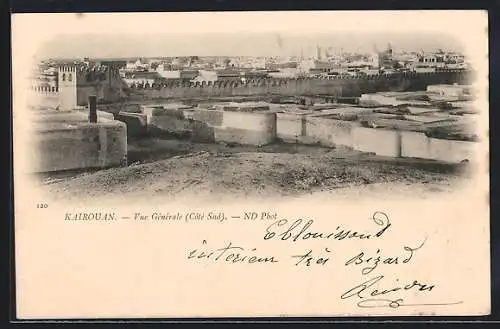 120
KAIROUAN. — Vue Générale (Côté Sud). — ND Phot
Eblouissant
intérieur très Bizard